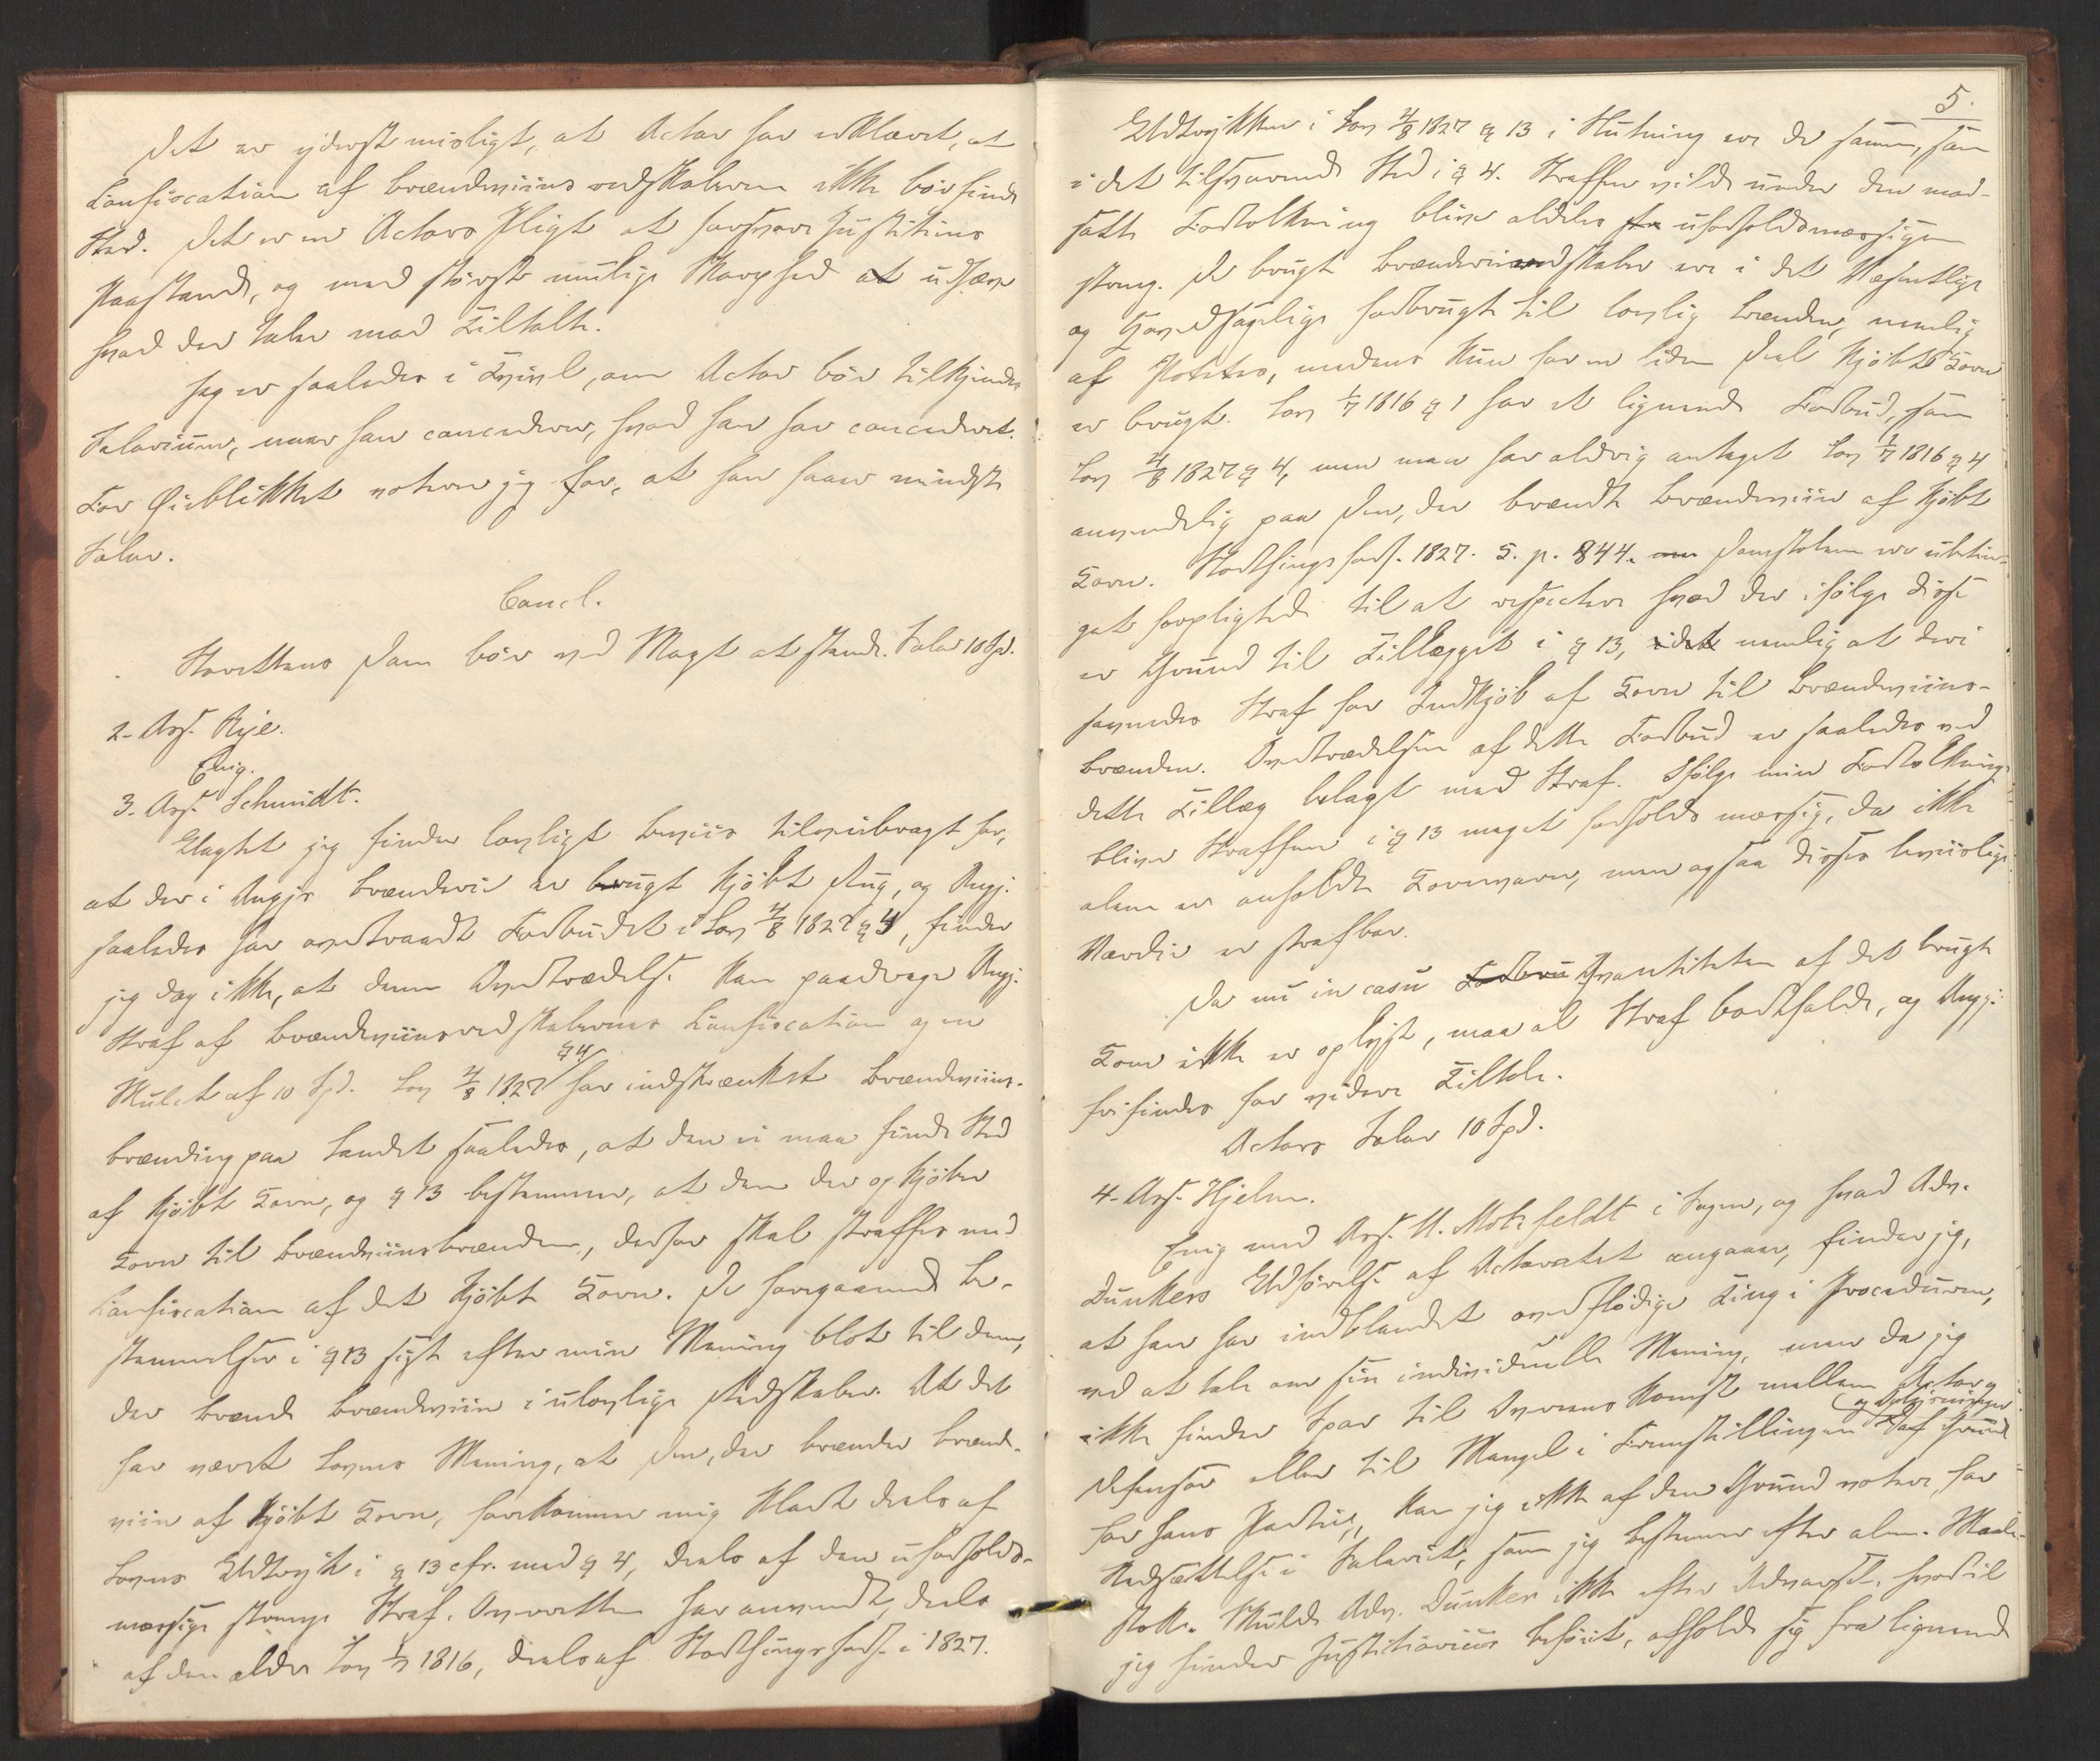 Det er yderst misligt, at Actor har erklæret, at
Confiscation af brændeviinsredskaberne ikke bör finde
Sted. Det er en Actors Pligt at forsvare Justitiens
Paastand, og med störst mulige Skarphed at udhæve
hvad der taler mod Tiltalte.
Jeg er saaledes i Tvivl, om Actor bör tilkjendes
Salarium, naar han concederer, hvad han har concederet.
For Öieblikket voterer jeg for, at han faaer mindste
Salar.
Concl.
Stiftsrettens Dom bör ved Magt at stande. Salar 10 Spd.
2. Ass. Rye.
Enig.
3. Ass. Schmidt.
Uagtet jeg finder lovligt Beviis tilveiebragt for,
at der i Angjs Brænderie er brugt kjöbt Rug, og Angj.
saaledes har overtraadt Forbudet i Lov 4/8 1827 § 4, finder
jeg dog ikke, at denne Overtrædelse kan paadrage Angj.
Straf af Brændeviinsredskabernes Confiscation og en
Mulct af 10 Spd. Lov 4/8 1827 § 4 har indskrænket Brændeviins-
brænding paa Landet saaledes, at den ei maa finde Sted
af kjöbt Korn, og § 13 bestemmer, at den der opkjöber
Korn til Brændeviinsbrænden, derfor skal straffes med
Confiscation af det kjöbte Korn. De foregaaende Be-
stemmelser i § 13 sigte efter min Mening blot til dem,
der brænde Brændeviin i ulovlige Redskaber. At det
har været Lovens Mening, at Den, der brænder Brænde-
viin af kjöbt Korn, forekommer mig klart deels af
Lovens Udtryk i § 13 cfr. med § 4, deels af den uforholds-
mæssige strenge Straf, Overretten har anvendt, deels
af den ældre Lov 1/7 1816, deels af Storthingsforh. i 1827.
5.
Udtrykkene i Lov 4/8 1827 § 13 i Slutning ere de samme, som
i det tilsvarende Sted i § 4. Straffen vilde under den mod-
satte Fortolkning blive aldeles uforholdsmæssigen
streng. De brugte Brænderiredskaber ere i det Væsentlige
og Hovedsagelige forbrugte til lovlig Brænden, nemlig
af Poteter, medens kun for en liden Deel kjöbt Korn
er brugt. Lov 1/7 1816 § 1 har et lignende Forbud, som
Lov 4/8 1827 § 4, men man har aldrig antaget Lov 1/7 1816 § 4
anvendelig paa Den, der brændte Brændeviin af kjöbt
Korn. Storthingsforh. 1827. 5. p. 844. Domstolene ere ubetin-
get forpligtede til at respectere hvad der ifölge disse
er Grund til Tillægget i § 13, nemlig at deri
savnedes Straf for Indkjöb af Korn til Brændeviins-
brænden. Overtrædelsen af dette Forbud er saaledes ved
dette Tillæg belagt med Straf. Ifölge min Fortolkning
bliver Straffen i § 13 meget forholdsmæssig, da ikke
alene er anholdte Kornvarer, men ogsaa disses beviislige
Værdie er strafbar.
Da nu in casu Qvantiteten af det brugte
Korn ikke er oplyst, maa al Straf bortfalde, og Angj.
frifindes for videre Tiltale.
Actors Salar 10 Spd.
4. Ass. Hjelm.
Enig med Ass. U. Motzfeldt i Sagen, og hvad Adv.
Dunkers Udförelse af Actoratet angaaer, finder jeg,
at han har indblandet overflödige Ting i Proceduren,
ved at tale om sin individuelle Mening, men da jeg
ikke finder Spor til Overeenskomst mellem Actor og
Defensor eller til Mangel i Fremstillingen og Oplysningen af Grunde
for hans Parties, kan jeg ikke af den Grund votere for
Nedsættelse i Salariet, som jeg bestemmer efter alm. Maale-
stok. Skulde Adv. Dunker ikke efter Advarsel, hvortil
jeg finder Justitiarius beföiet, afholde sig fra lignende